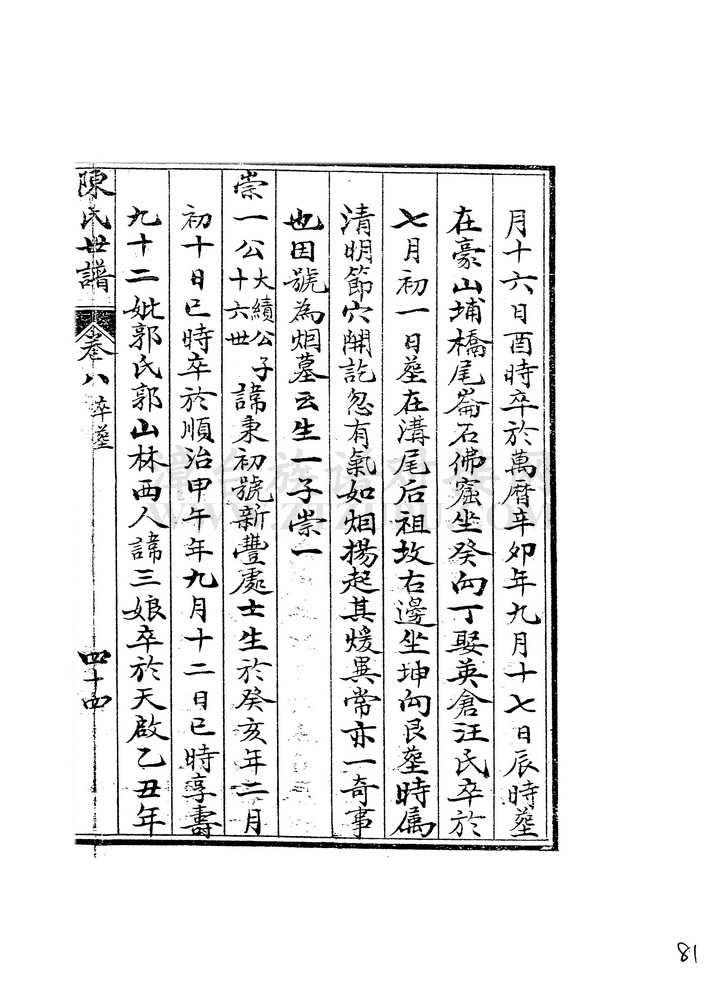 月十六日酉時卒於萬曆辛卯年九月十七日辰時塟
在豪山埔橋尾崙石佛窟坐癸向丁娶英倉汪氏卒於
七月初一日塟在溝尾后祖坟右邊坐坤向艮塟時属
清明節穴開訖忽有氣如烟揚起其煖異常亦一奇事
也因號為烟墓云生一子崇一
崇一公大績公子十六世諱秉初號新豐處士生於癸亥年二月
初十日巳時卒於順治甲午年九月十二日巳時享壽
九十二妣郭氏郭山林西人諱三娘卒於天啟乙丑年
陳氏世譜 卷八 卒塟 四十四
81